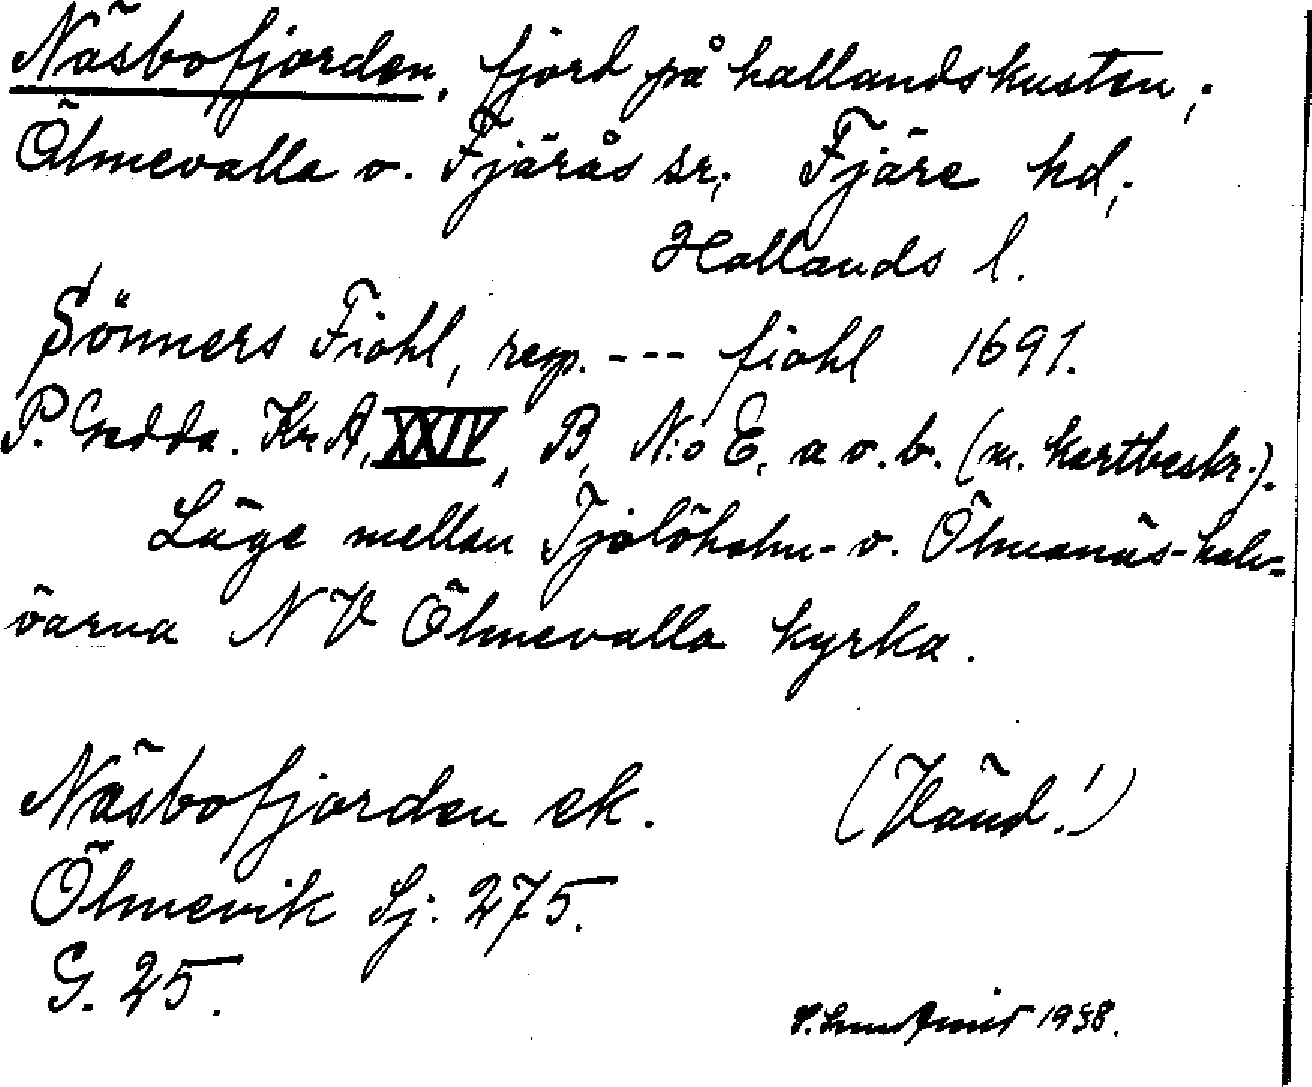 Näsbofjorden, fjord på hallandskusten,;
Ölmevalla o. Fjärås sr,; Fjäre hd,;
Hallands l.
Sönners Fiohl, resp. --- fiohl 1691.
P. Gedda. Kr A, XXIV, B, N:o E, a o. b. (m. kartbeskr.).
Läge mellan Tjolöholm- o. Ölmanäs-halv-
öarna NV Ölmevalla kyrka.
Näsbofjorden ek. (Vänd!)
Ölmevik Sj: 275.
G. 25.
1938.